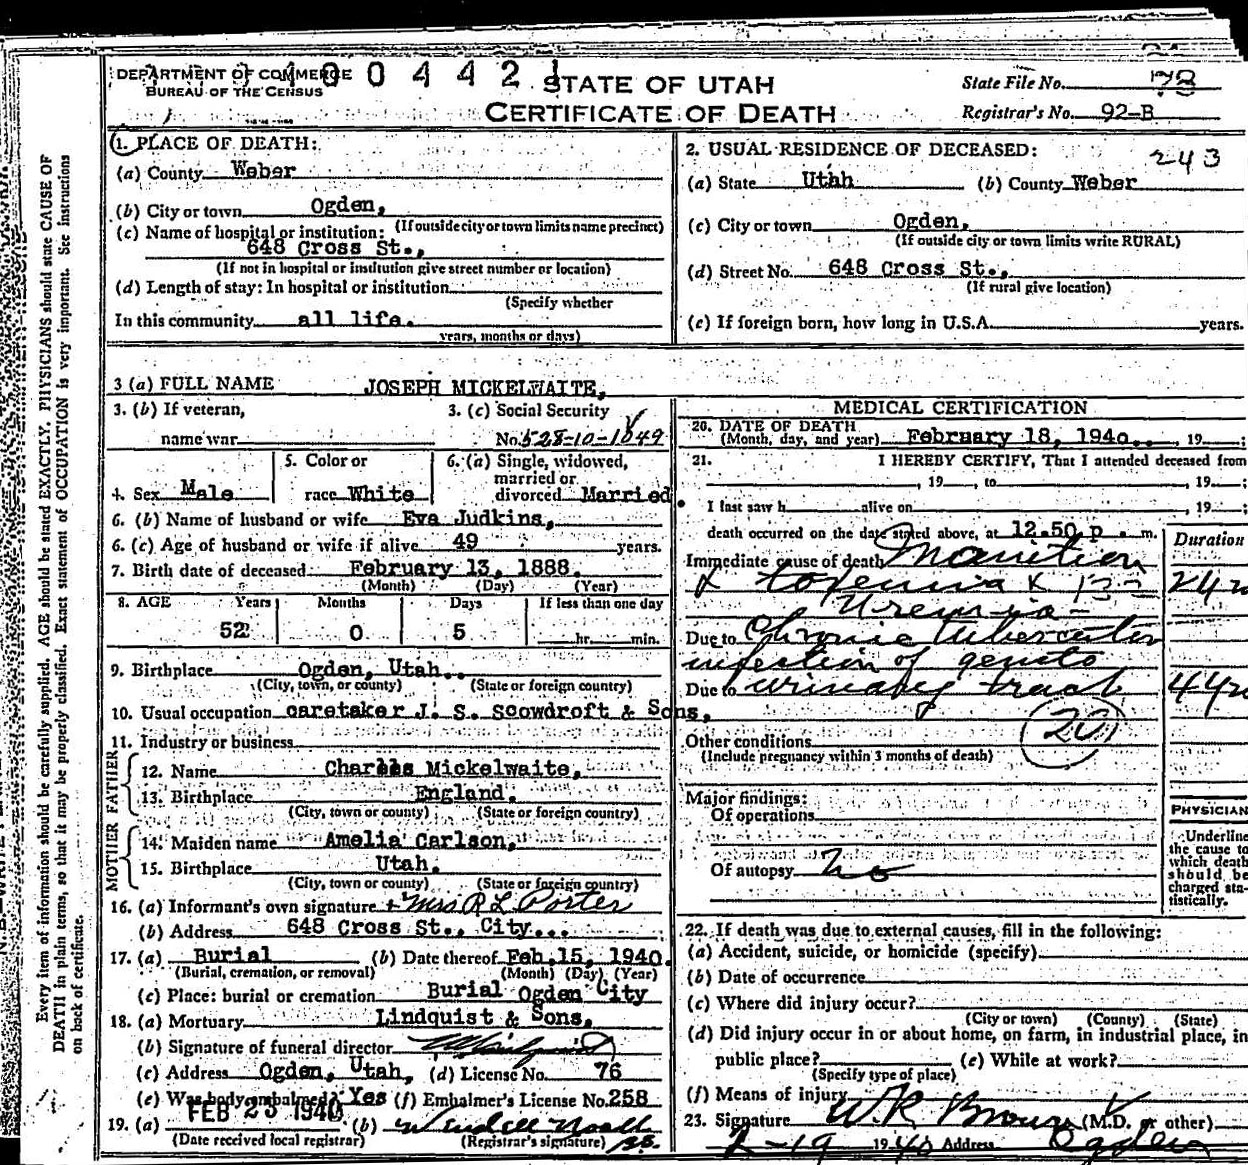 DEPARTMENT OF COMMERCE
BUREAU OF THE CENSUS
400442
STATE OF UTAH
CERTIFICATE OF DEATH
State File No. 78
Registrar's No. 92-B
1. PLACE OF DEATH:
(a) County Weber
(b) City or town Ogden,
(If outside city or town limits name precinct)
(c) Name of hospital or institution:
648 Cross St.,
(If not in hospital or institution give street number or location)
(d) Length of stay: In hospital or institution
(Specify whether
In this community all life.
years, months or days)
2. USUAL RESIDENCE OF DECEASED:
243
(a) State Utah (b) County Weber
(c) City or town Ogden,
(If outside city or town limits write RURAL)
(d) Street No. 648 Cross St.,
(If rural give location)
(e) If foreign born, how long in U.S.A. years.
3 (a) FULL NAME JOSEPH MICKELWAITE,
3. (b) If veteran,
name war
3. (c) Social Security
No. 528-10-1849
4. Sex Male
5. Color or
race White
6. (a) Single, widowed,
married or
divorced Married.
6. (b) Name of husband or wife Eva Judkins,
6. (c) Age of husband or wife if alive 49 years.
7. Birth date of deceased February 13, 1888.
(Month) (Day) (Year)
8. AGE Years Months Days If less than one day
52 0 5 hr. min.
9. Birthplace Ogden, Utah.
(City, town, or county) (State or foreign country)
10. Usual occupation caretaker J. S. Scowdroft & Sons,
11. Industry or business
FATHER
12. Name Charles Mickelwaite,
13. Birthplace England.
(City, town or county) (State or foreign country)
MOTHER
14. Maiden name Amelia Carlson,
15. Birthplace Utah.
(City, town or county) (State or foreign country)
16. (a) Informant's own signature Mrs R L Porter
(b) Address 648 Cross St., City...
17. (a) Burial (b) Date thereof Feb.15, 1940.
(Burial, cremation, or removal) (Month) (Day) (Year)
(c) Place: burial or cremation Burial Ogden City
18. (a) Mortuary Lindquist & Sons.
(b) Signature of funeral director
(c) Address Ogden, Utah, (d) License No. 76
(e) Was body embalmed? Yes (f) Embalmer's License No. 258
19. (a) FEB 23 1940 (b)
(Date received local registrar) (Registrar's signature)
MEDICAL CERTIFICATION
20. DATE OF DEATH
(Month, day, and year) February 18, 1940. , 19 ;
21. I HEREBY CERTIFY, That I attended deceased from
, 19 , to , 19 ;
I last saw h alive on , 19 ;
death occurred on the date stated above, at 12.50 p . m.
Duration
Immediate cause of death Inanition
& toxemia
Uremia
Due to Chronic tubercular
infection of genito
Due to urinary tract
20
Other conditions
(Include pregnancy within 3 months of death)
Major findings:
Of operations
Of autopsy no
PHYSICIAN
Underline
the cause to
which death
should be
charged sta-
tistically.
22. If death was due to external causes, fill in the following:
(a) Accident, suicide, or homicide (specify)
(b) Date of occurrence
(c) Where did injury occur?
(City or town) (County) (State)
(d) Did injury occur in or about home, on farm, in industrial place, in
public place? (e) While at work?
(Specify type of place)
(f) Means of injury
23. Signature W.R. Brown (M.D. or other)
2-19 1940 Address Ogden
Every item of information should be carefully supplied. AGE should be stated EXACTLY. PHYSICIANS should state CAUSE OF
DEATH in plain terms, so that it may be properly classified. Exact statement of OCCUPATION is very important. See instructions
on back of certificate.